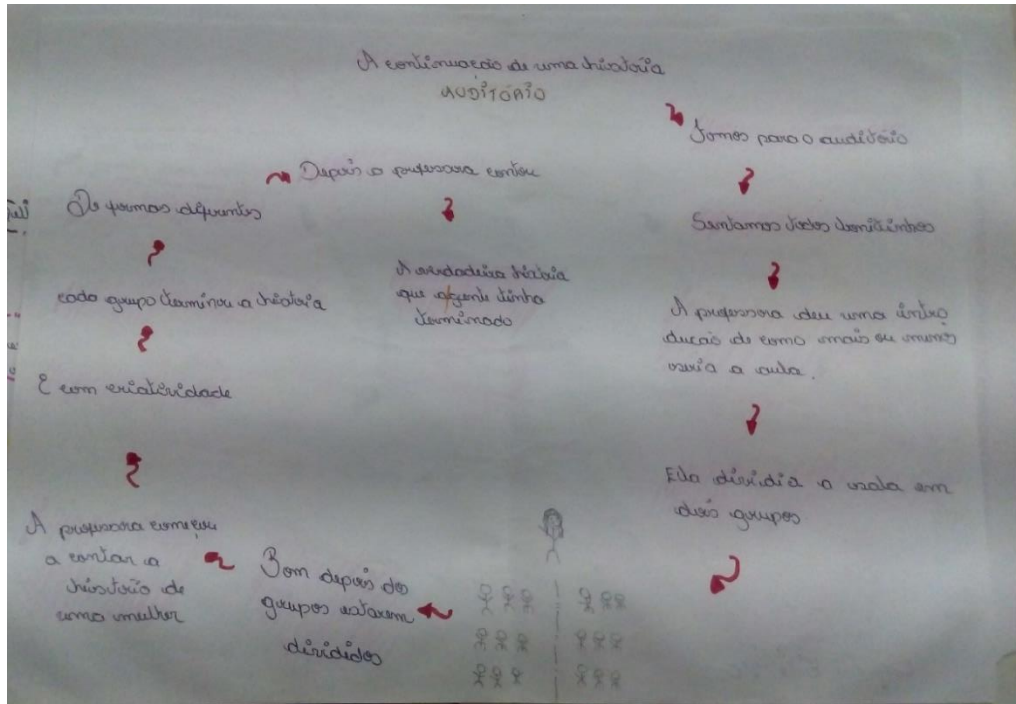 A continuação de uma história
AUDITÓRIO
Fomos para o auditório
Sentamos todos bonitinhos
A professora deu uma intro
dução de como mais ou menos
seria a aula.
Ela dividia a sala em
dois grupos
Bom depois dos
grupos estarem
divididos
A professora começou
a contar a
história de
uma mulher
E com criatividade
cada grupo terminou a história
De formas diferentes
Depois a professora contou
A verdadeira história
que agente tinha
terminado